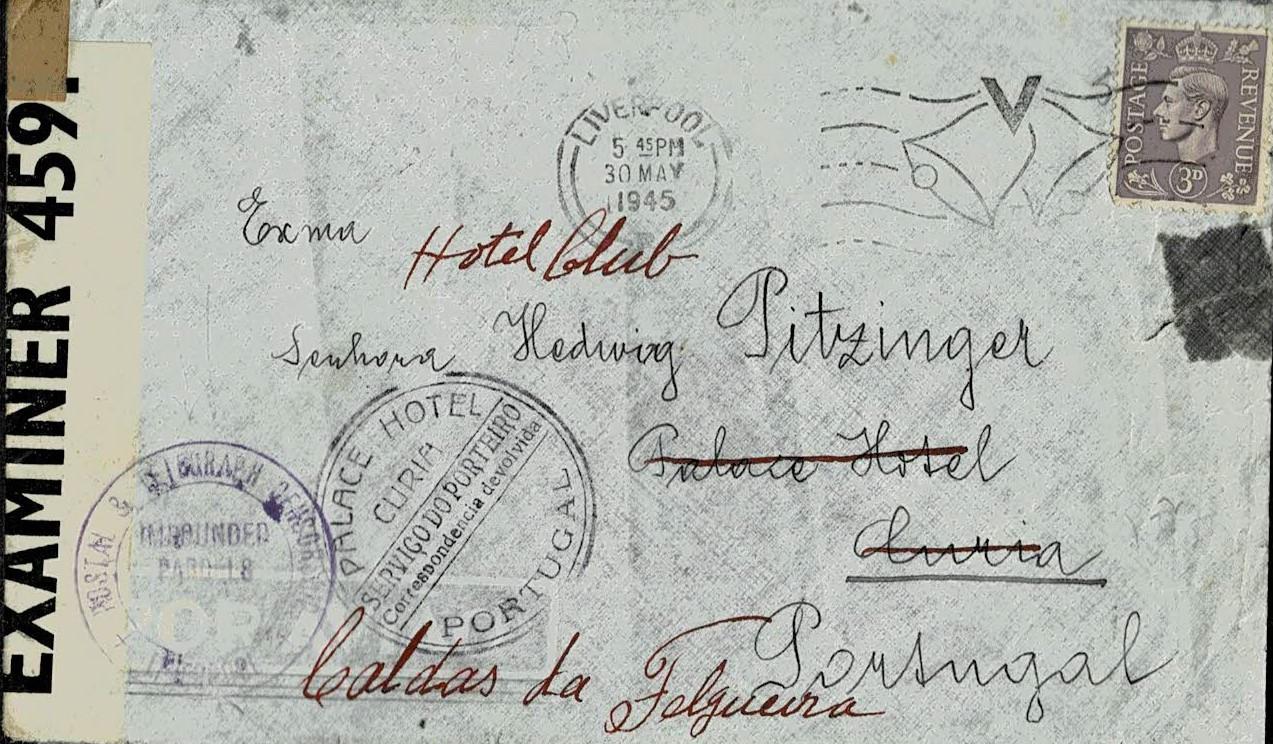 EXAMINER 459.
LIVERPOOL
5 45PM
30 MAY
1945
V
POSTAGE REVENUE
3D
Exma
Hotel Club
Senhora Hedwig Pitzinger
Palace Hotel
Curia
Portugal
Caldas da Felgueira
PALACE HOTEL
CURIA
SERVIÇO DO PORTEIRO
Correspondencia devolvida
PORTUGAL
POSTAL & TELEGRAPH CENSOR
IMPOUNDED